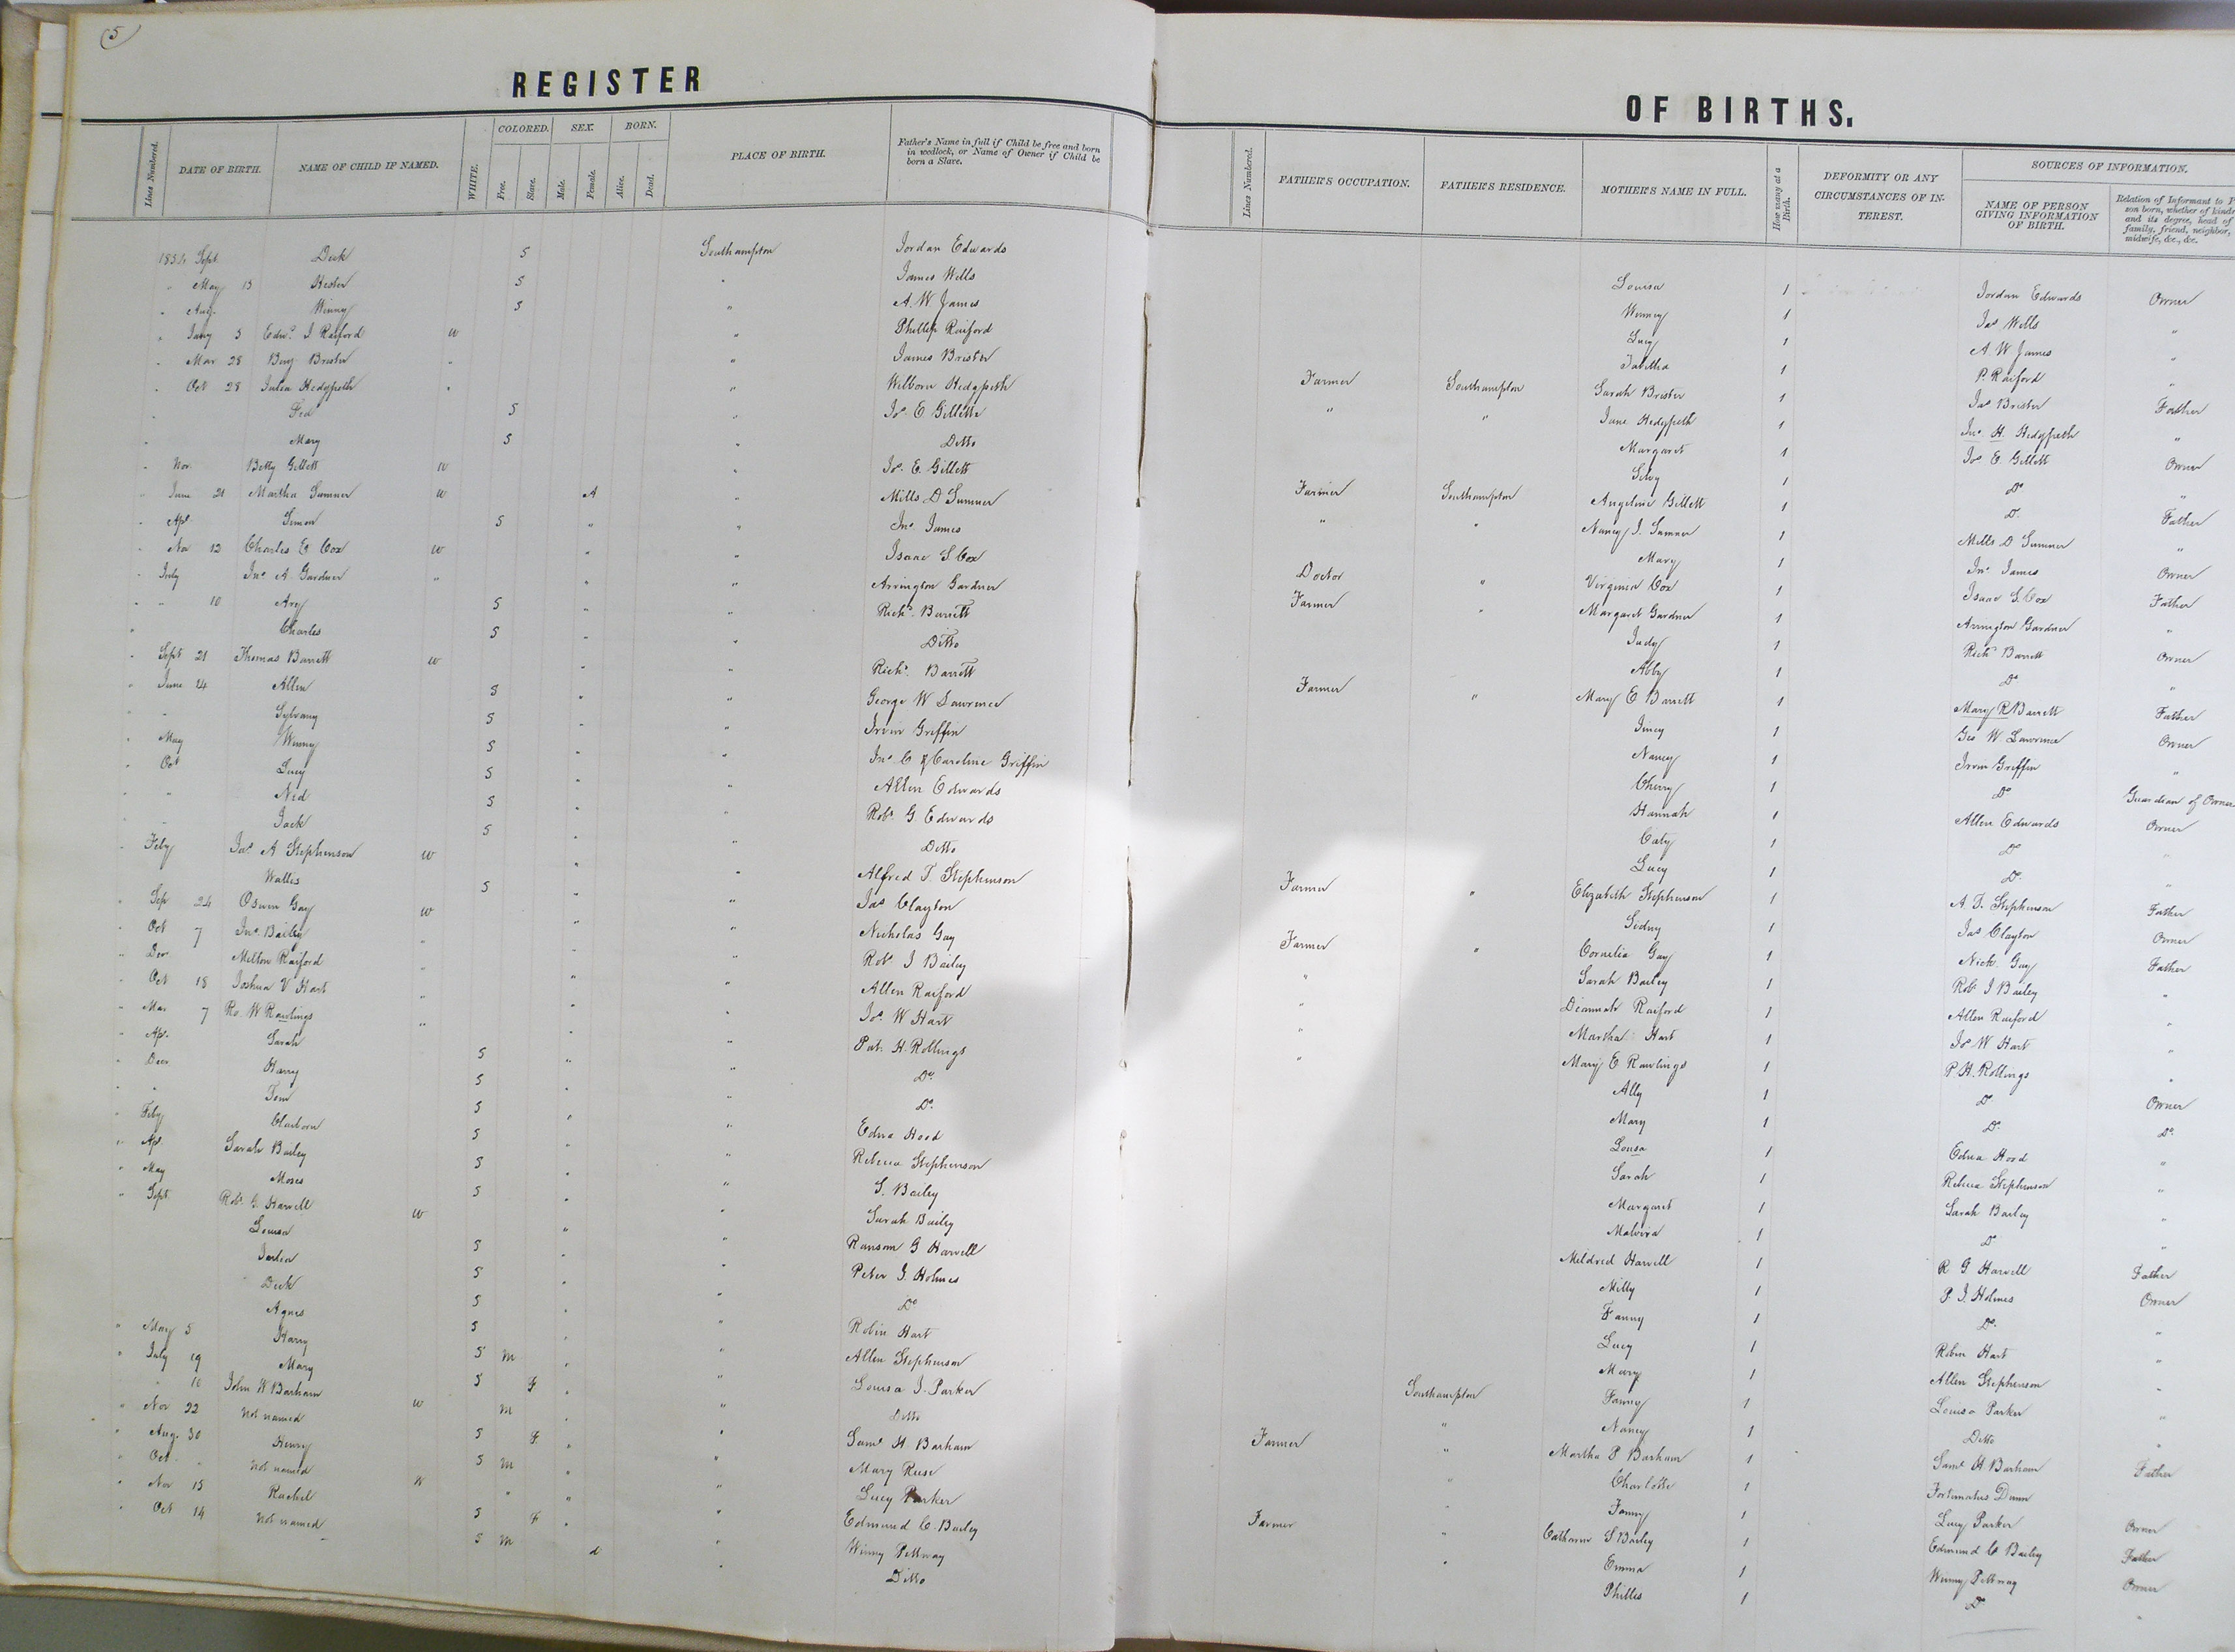 5
REGISTER
Lines Numbered. DATE OF BIRTH. NAME OF CHILD IF NAMED. WHITE. COLORED. Free. Slave. SEX. Male. Female. BORN. Alive. Dead. PLACE OF BIRTH. Father's Name in full if Child be free and born in wedlock, or Name of Owner if Child be born a Slave.
1854 Sept Dick S Southampton Jordan Edwards
" May 15 Hester S " James Wells
" Aug. Winny S " A. W. James
" Jany 3 Edwd. J. Raiford W " Phillip Raiford
" Mar 28 Benj Brister " " James Brister
" Oct 28 Julia Hedgpeth " " Wilborn Hedgpeth
" Fed S " Jos. E Gillette
" Mary S " Ditto
" Nov. Betty Gillett W " Jos. E. Gillett
" June 21 Martha Sumner W A " Mills D Sumner
" Apl. Simon S " " Jno. James
" Nov 12 Charles E Cox W " " Isaac S. Cox
" July Jno. A. Gardner " " " Arrington Gardner
" " 10 Any S " " Richd. Barrett
" Charles S " " Ditto
" Sept 21 Thomas Barrett W " Richd. Barrett
" June 24 Allen S " " George W Lawrence
" " Sylvany S " " Irvin Griffin
" May Winny S " " Jno. C & Caroline Griffin
" Oct Lucy S " " Allen Edwards
" " Ned S " " Robt. G. Edwards
Jack S " " Ditto
" Feby Jas. A Stephenson W " " Alfred T. Stephenson
Wallis S " " Jas Clayton
" Sep 24 Oswin Gay W " " Nicholas Gay
" Oct 7 Jno. Bailey " " Robt. J Bailey
" Dec Milton Raiford " " " Allen Raiford
" Oct 18 Joshua V Hart " " Jos. W Hart
" Mar 7 Ro. W Rawlings " " " Patr. H. Rollings
" Apl. Sarah S " " Do.
" Decr Harry S " Do.
" " Tom S " " Edna Hood
" Feby Claiborn S " Rebecca Stephenson
" Apl. Sarah Bailey S " " S. Bailey
" May Moses S " " Sarah Bailey
" Sept. Robt. G. Harvell W " " Ransom G Harvell
Louisa S " " Peter J. Holmes
Julia S " " Do
Dick S " Robin Hart
Agnes S " " Allen Stephenson
" May 5 Harry S M " " Louisa J. Parker
" July 19 Mary S F " " Ditto
" 10 John W Barham W M " " Saml. H Barham
" Nov 22 Not named S F " " Mary Ruse
" Aug. 30 Henry S M " " Lucy Parker
" Oct. " Not named W " " " Edmund C. Bailey
" Nov 15 Rachel S F " " Winny Pettway
" Oct 14 Not named S M d " Ditto
OF BIRTHS.
Lines Numbered. FATHER'S OCCUPATION. FATHER'S RESIDENCE. MOTHER'S NAME IN FULL. How many at a Birth. DEFORMITY OR ANY CIRCUMSTANCES OF INTEREST. SOURCES OF INFORMATION. NAME OF PERSON GIVING INFORMATION OF BIRTH. Relation of Informant to P son born, whether of kind and its degree, head of family, friend, neighbor, midwife, &c., &c.
Louisa 1 Jordan Edwards Owner
Winney 1 Jas Wells "
Lucy 1 A. W. James "
Tabitha 1 P. Raiford "
Farmer Southampton Sarah Brister 1 Jas Brister Father
" " Jane Hedgpeth 1 Jno. H. Hedgpeth "
Margaret 1 Jos E. Gillett Owner
Silvy 1 Do "
Farmer Southampton Angeline Gillett 1 Do. Father
" " Nancy J. Sumner 1 Mills D Sumner "
Mary 1 Jno. James Owner
Doctor " Virginia Cox 1 Isaac S. Cox Father
Farmer " Margaret Gardner 1 Arrington Gardner "
Judy 1 Richd. Barrett Owner
Abby 1 Do "
Farmer " Mary E Barrett 1 Mary R Barrett Father
Jincy 1 Geo W. Lawrence Owner
Nancy 1 Irvin Griffin "
Cherry 1 Do Guardian of Owner
Hannah 1 Allen Edwards Owner
Caty 1 Do "
Lucy 1 Do. "
Farmer " Elizabeth Stephenson 1 A. T. Stephenson Father
Sidny 1 Jas Clayton Owner
Farmer " Cornelia Gay 1 Nick. Gay Father
" Sarah Bailey 1 Robt J Bailey "
" Diannah Raiford 1 Allen Raiford "
" Martha Hart 1 Jos W Hart "
" Mary E Rawlings 1 P. H. Rollings "
Ally 1 Do Owner
Mary 1 Do. Do.
Lousa 1 Edna Hood "
Sarah 1 Rebecca Stephenson "
Margaret 1 Sarah Bailey "
Malvira 1 Do "
Mildred Harvell 1 R G Harvell Father
Milly 1 P. J. Holmes Owner
Fanny 1 Do. "
Lucy 1 Robin Hart "
Mary 1 Allen Stephenson "
Southampton Fanny 1 Louisa Parker "
" Nancy 1 Ditto "
Farmer " Martha P Barham 1 Saml. H. Barham Father
" Charlotte 1 Fortunatus Dunn
" Fanny 1 Lucy Parker Owner
Farmer " Catharine S Bailey 1 Edmund C Bailey Father
" Emma 1 Winny Pettway Owner
Phillis 1 Do